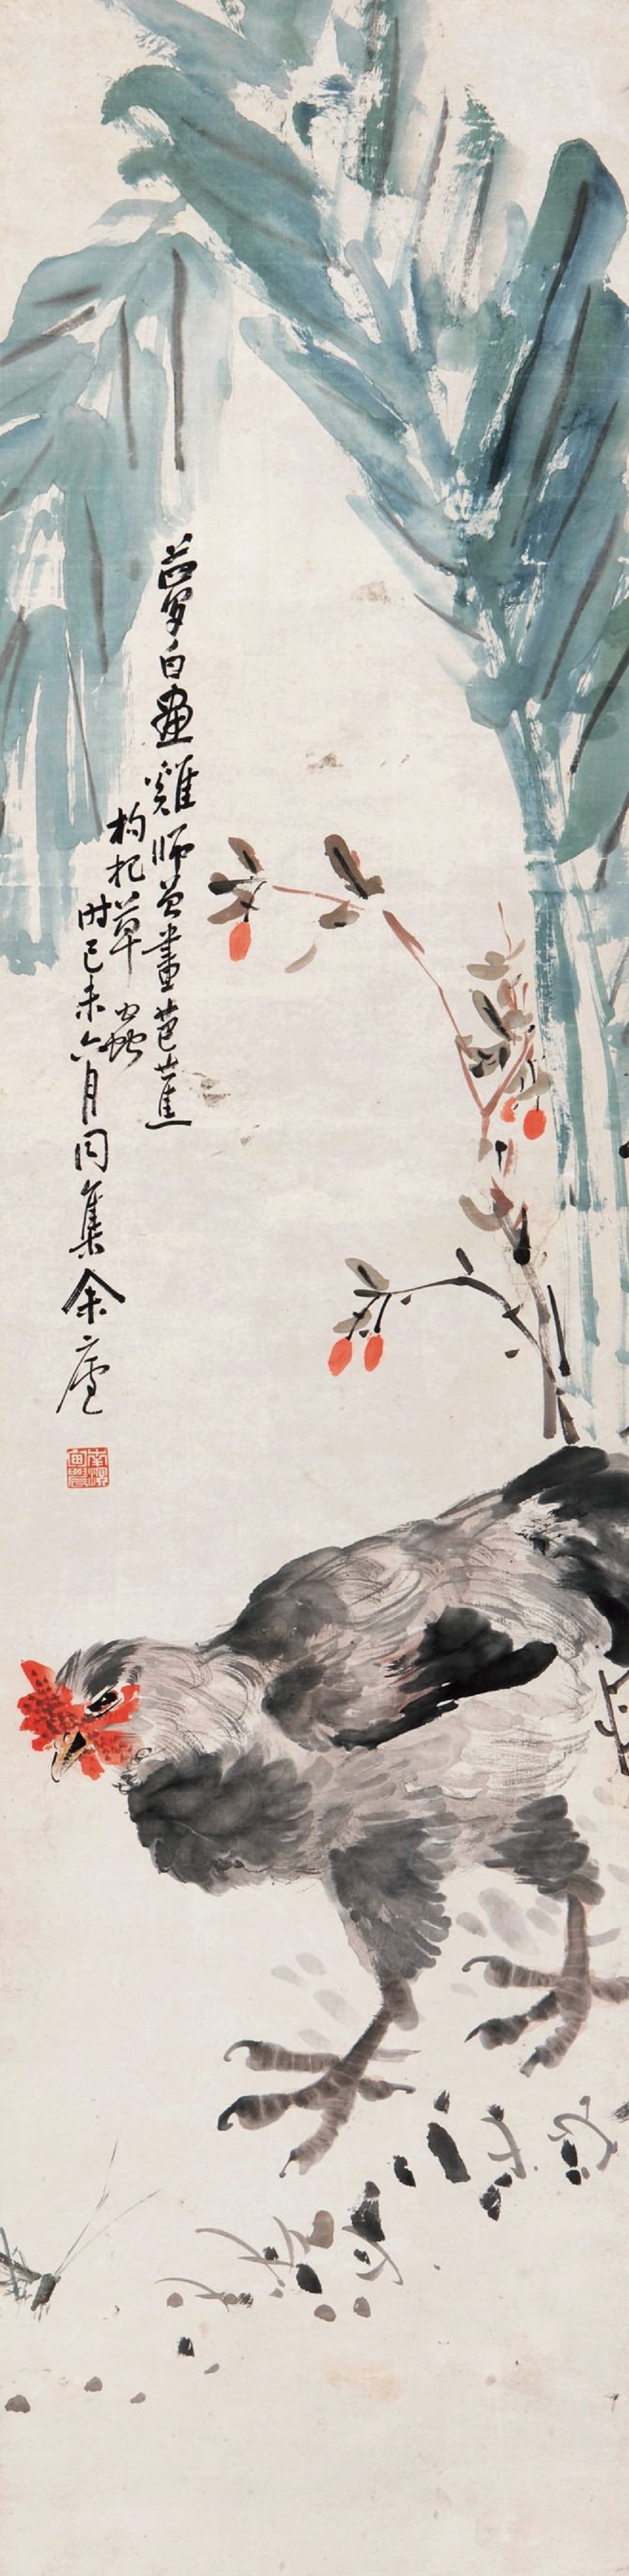 夢白畫雞師曾畫芭蕉
枸杞草蟲
时己未六月同集余廬